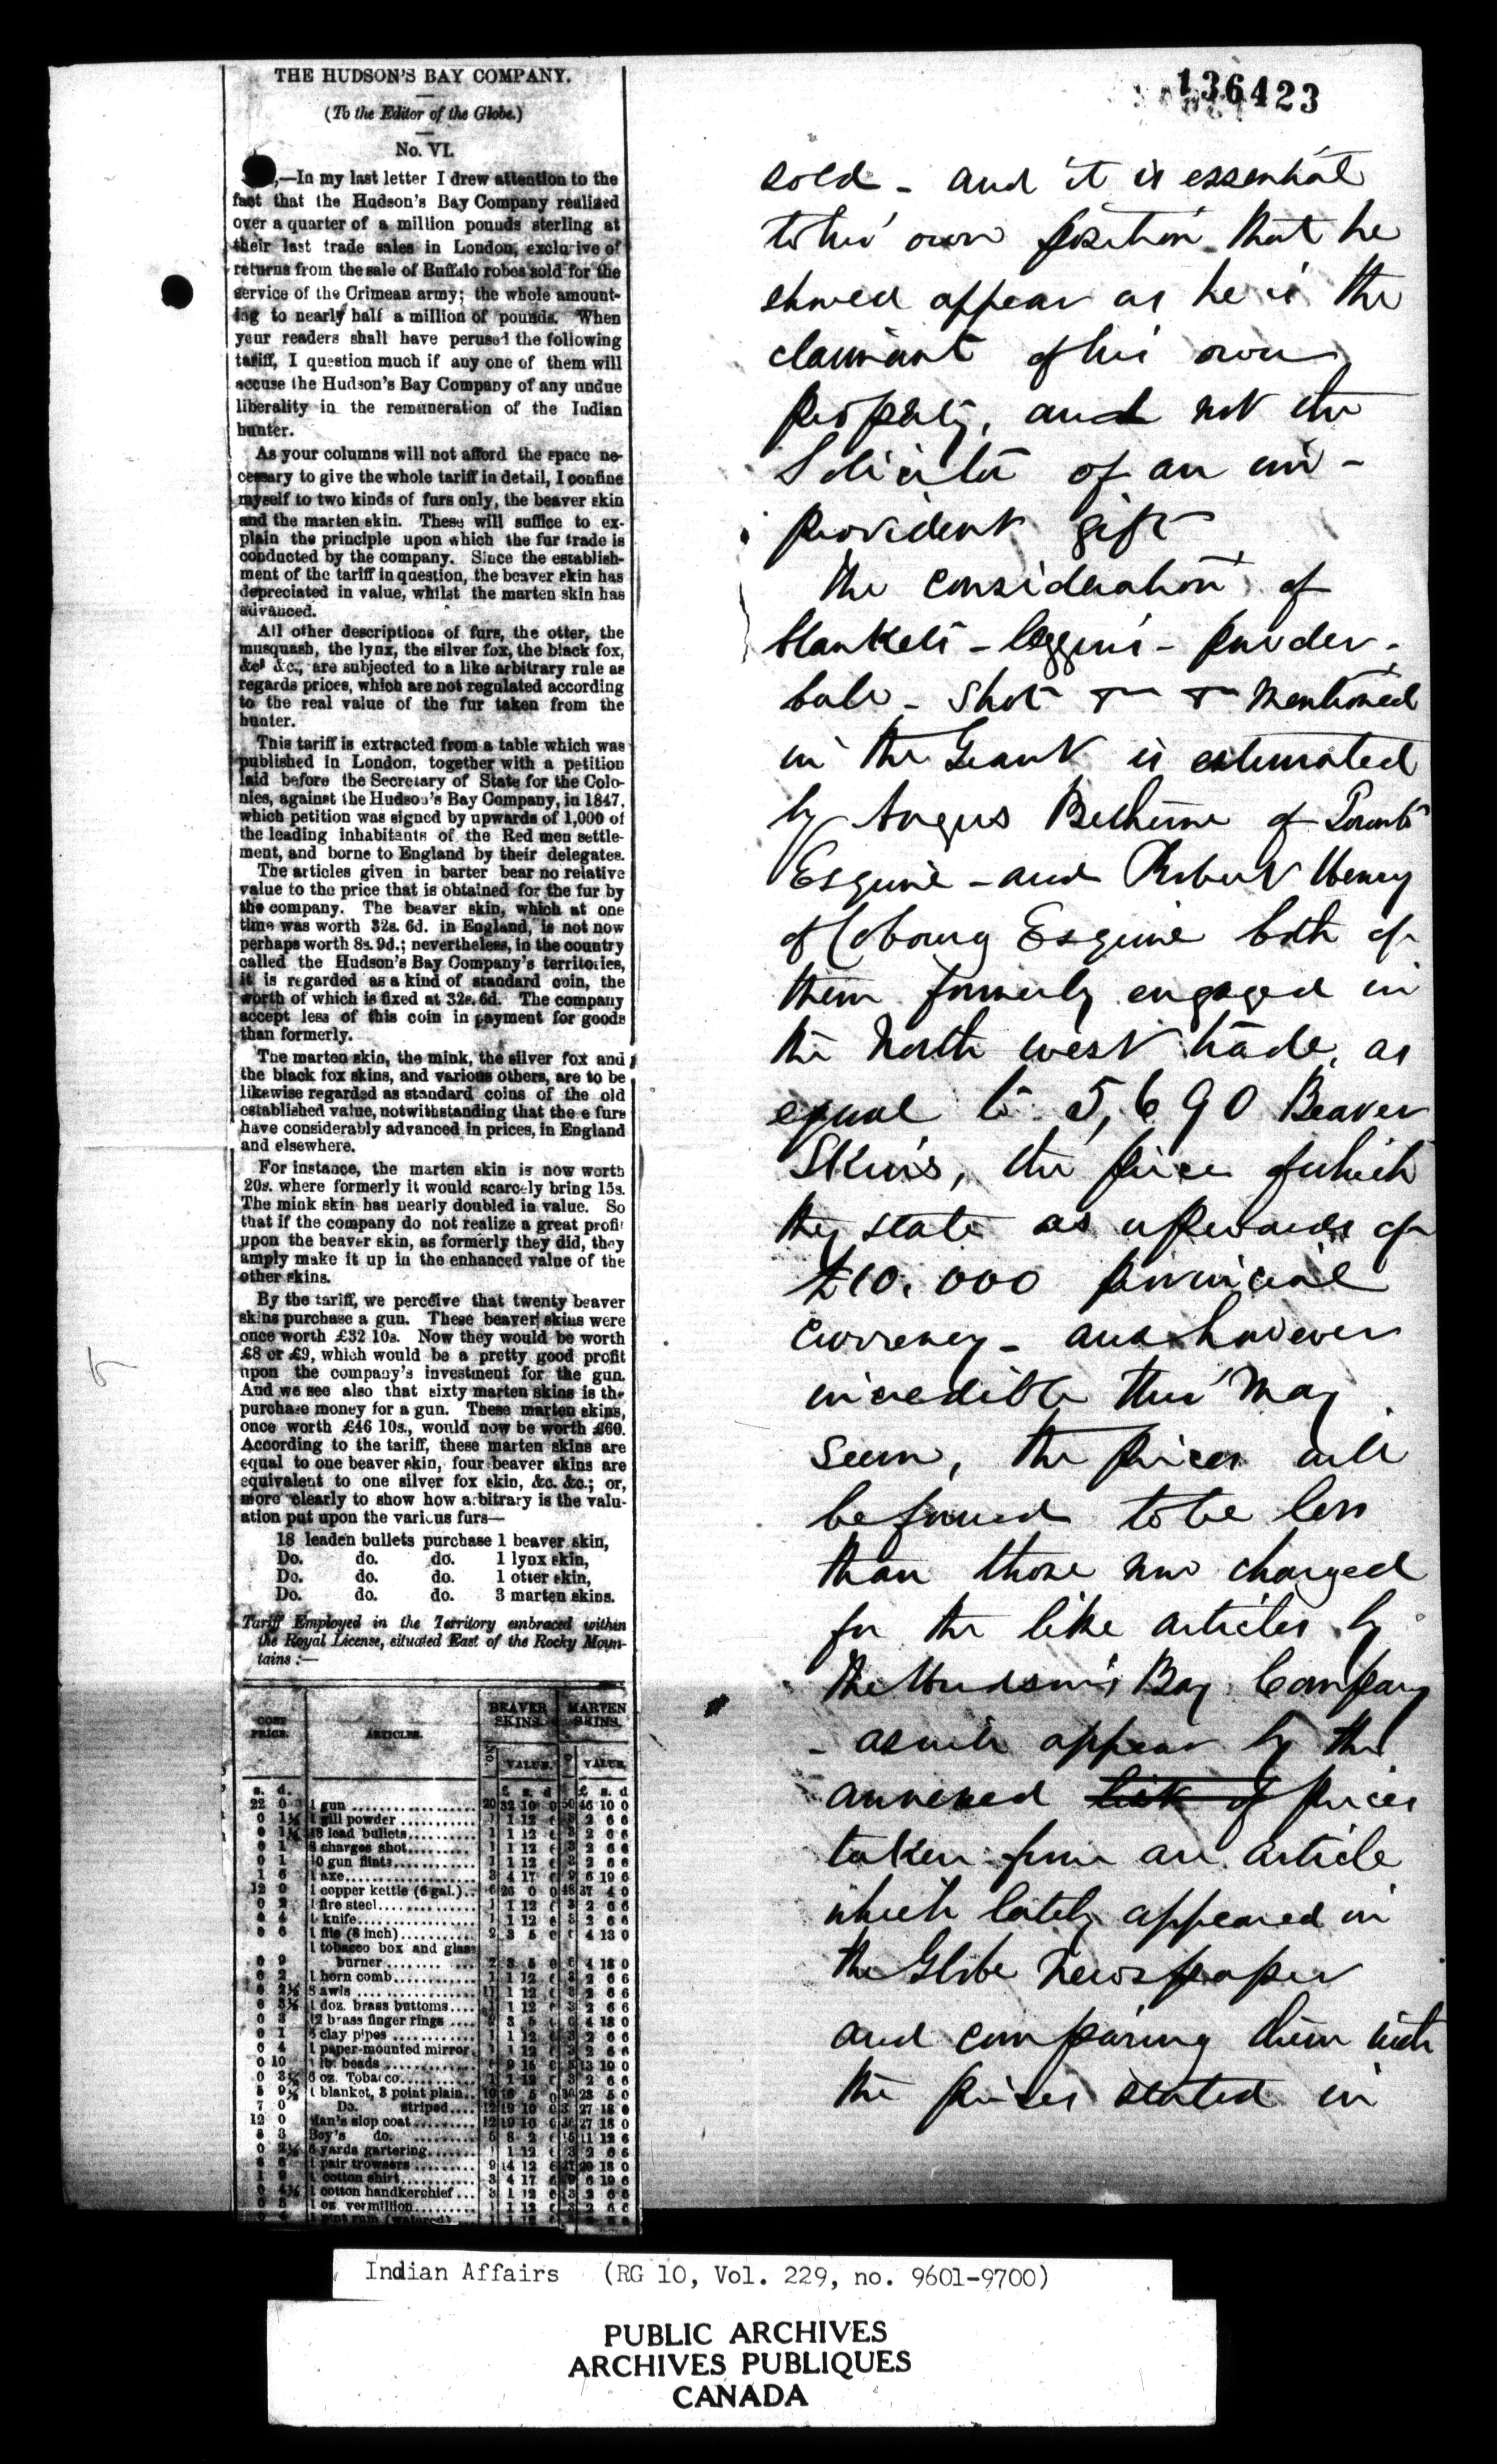 THE HUDSON'S BAY COMPANY.
(To the Editor of the Globe.)
No. VI.
,—In my last letter I drew attention to the
fact that the Hudson's Bay Company realized
over a quarter of a million pounds sterling at
their last trade sales in London, exclusive of
returns from the sale of Buffalo robes sold for the
service of the Crimean army; the whole amount-
ing to nearly half a million of pounds. When
your readers shall have perused the following
tariff, I question much if any one of them will
accuse the Hudson's Bay Company of any undue
liberality in the remuneration of the Indian
hunter.
As your columns will not afford the space ne-
cessary to give the whole tariff in detail, I confine
myself to two kinds of furs only, the beaver skin
and the marten skin. These will suffice to ex-
plain the principle upon which the fur trade is
conducted by the company. Since the establish-
ment of the tariff in question, the beaver skin has
depreciated in value, whilst the marten skin has
advanced.
All other descriptions of furs, the otter, the
musquash, the lynx, the silver fox, the black fox,
&c &c., are subjected to a like arbitrary rule as
regards prices, which are not regulated according
to the real value of the fur taken from the
hunter.
This tariff is extracted from a table which was
published in London, together with a petition
laid before the Secretary of State for the Colo-
nies, against the Hudson's Bay Company, in 1847,
which petition was signed by upwards of 1,000 of
the leading inhabitants of the Red men settle-
ment, and borne to England by their delegates.
The articles given in barter bear no relative
value to the price that is obtained for the fur by
the company. The beaver skin, which at one
time was worth 32s. 6d. in England, is not now
perhaps worth 8s. 9d.; nevertheless, in the country
called the Hudson's Bay Company's territories,
it is regarded as a kind of standard coin, the
worth of which is fixed at 32s. 6d. The company
accept less of this coin in payment for goods
than formerly.
The marten skin, the mink, the silver fox and
the black fox skins, and various others, are to be
likewise regarded as standard coins of the old
established value, notwithstanding that the e furs
have considerably advanced in prices, in England
and elsewhere.
For instance, the marten skin is now worth
20s. where formerly it would scarcely bring 15s.
The mink skin has nearly doubled in value. So
that if the company do not realize a great profit
upon the beaver skin, as formerly they did, they
amply make it up in the enhanced value of the
other skins.
By the tariff, we perceive that twenty beaver
skins purchase a gun. These beaver skins were
once worth £32 10s. Now they would be worth
£8 or £9, which would be a pretty good profit
upon the company's investment for the gun.
And we see also that sixty marten skins is the
purchase money for a gun. These marten skins,
once worth £46 10s., would now be worth £60.
According to the tariff, these marten skins are
equal to one beaver skin, four beaver skins are
equivalent to one silver fox skin, &c. &c.; or,
more clearly to show how arbitrary is the valu-
ation put upon the various furs—
18 leaden bullets purchase 1 beaver skin,
Do. do. do. 1 lynx skin,
Do. do. do. 1 otter skin,
Do. do. do. 3 marten skins.
Tariff Employed in the Territory embraced within
the Royal License, situated East of the Rocky Moun-
tains :—
COST PRICE. ARTICLES. BEAVER SKINS. MARTEN SKINS.
No. VALUE. VALUE.
s. d. £ s. d £ s. d
22 0 1 gun 20 32 10 0 46 10 0
1 gill powder 1 1 12 3 2 6 6
18 lead bullets 1 1 12 3 2 6 6
0 1 8 charges shot 1 1 12 3 2 6 6
0 1 10 gun flints 1 1 12 3 2 6 6
1 6 1 axe 3 4 17 9 6 19 6
12 0 1 copper kettle (6 gal.) 26 0 0 48 37 4 0
0 2 1 fire steel 1 1 12 3 2 6 6
0 4 1 knife 1 1 12 3 2 6 6
0 6 1 file (8 inch) 2 3 5 4 13 0
1 tobacco box and glass
0 9 burner 2 3 5 4 18 0
0 2 1 horn comb 1 1 12 3 2 6 6
0 2½ 3 awls 1 1 12 3 2 6 6
0 3½ 1 doz. brass buttons 1 1 12 3 2 6 6
0 3 12 brass finger rings 3 5 4 18 0
0 1 clay pipes 1 1 12 3 2 6 6
0 4 1 paper-mounted mirror 1 1 12 3 2 6 6
0 10 1 lb. beads 9 15 13 19 0
0 3½ 6 oz. Tobacco 1 1 12 3 2 6 6
5 9½ 1 blanket, 3 point plain 10 16 5 0 30 23 5 0
7 0 Do. striped 12 19 10 27 18 0
12 0 Man's slop coat 12 19 10 27 18 0
5 3 Boy's do. 5 8 2 15 11 12 6
0 2½ 6 yards gartering 1 12 3 2 6 6
6 6 1 pair trowsers 9 14 12 27 20 18 0
1 9 1 cotton shirt 3 4 17 9 6 19 6
0 4½ 1 cotton handkerchief 1 12 3 2 6 6
1 oz. vermillion 1 1 12 3 2 6 6
1 pint rum (watered)
136423
sold - and it is essential
to his own position that he
should appear as he is the
claimant of his own
property, and not the
Solicitor of an im-
provident gift
The consideration of
blankets - leggins - powder -
ball - shot &c &c mentioned
in the Grant is estimated
by Angus Bethune of Toronto
Esquire - and Robert Henry
of Cobourg Esquire both of
them formerly engaged in
the North west trade, as
equal to 5,690 Beaver
Skins, the price of which
they state as upwards of
£10.000 provincial
currency - and however
incredible this may
seem, the prices will
be found to be less
than those now charged
for the like articles by
the Hudson's Bay Company
- as will appear by the
annexed list of prices
taken from an article
which lately appeared in
the Globe Newspaper
and comparing them with
the prices stated in
Indian Affairs (RG 10, Vol. 229, no. 9601-9700)
PUBLIC ARCHIVES
ARCHIVES PUBLIQUES
CANADA